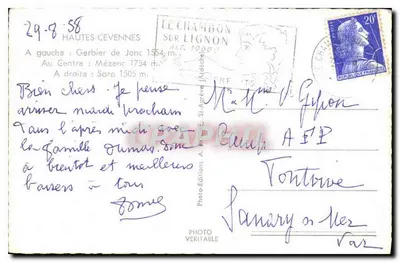 29-8 58
HAUTES-CEVENNES
A gauche : Gerbier de Jonc 1554 m.
Au Centre : Mézenc 1754 m.
A droite : Sara 1505 m.
LE CHAMBON
SUR LIGNON
ALT. 1000
20F
Bien chers. Je pense
arriver mardi prochain
dans l'après midi avec
la famille Dumas. Donc
à bientôt et meilleurs
baisers à tous
Mr Mme
Camp
Fontvive
Sanary s/ Mer
Var
PHOTO
VERITABLE